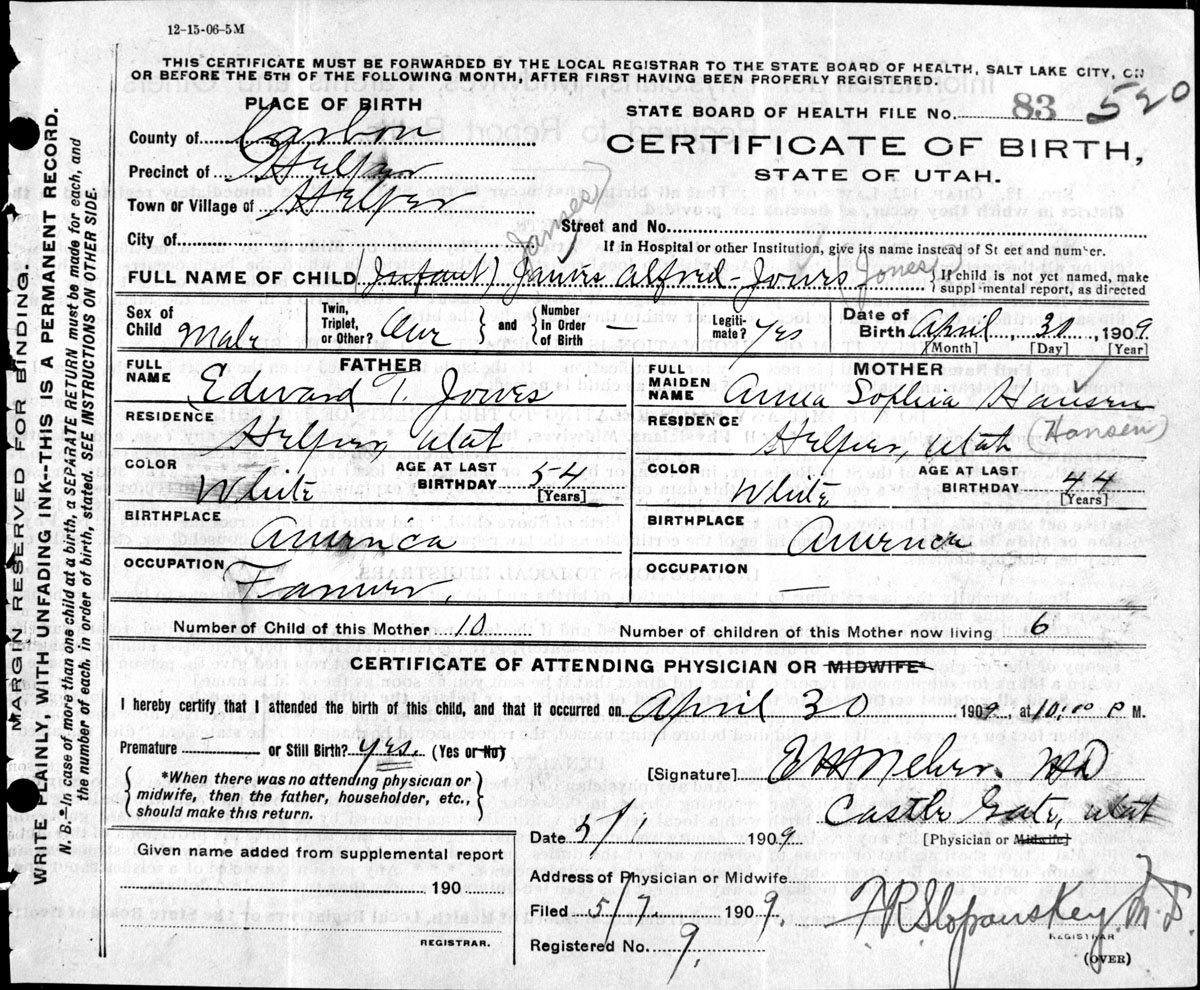 12-15-06-5M
THIS CERTIFICATE MUST BE FORWARDED BY THE LOCAL REGISTRAR TO THE STATE BOARD OF HEALTH, SALT LAKE CITY, ON
OR BEFORE THE 5TH OF THE FOLLOWING MONTH, AFTER FIRST HAVING BEEN PROPERLY REGISTERED.
PLACE OF BIRTH
STATE BOARD OF HEALTH FILE No. 83 520
County of Carbon
CERTIFICATE OF BIRTH,
Precinct of Helper
STATE OF UTAH.
Town or Village of Helper
Street and No.
City of
If in Hospital or other Institution, give its name instead of St eet and number.
(James)
FULL NAME OF CHILD (Infant) James Alfred Jones (Jones)
If child is not yet named, make
suppl mental report, as directed
Sex of Child Male
Twin, Triplet, or Other? One
and Number In Order of Birth —
Legitimate? Yes
Date of Birth April, 30 1909
[Month] [Day] [Year]
FATHER
FULL NAME Edward T. Jones
MOTHER
FULL MAIDEN NAME Anna Sophia Hansen
(Hansen)
RESIDENCE Helper, Utah
RESIDENCE Helper, Utah
COLOR White
AGE AT LAST BIRTHDAY 54
[Years]
COLOR White
AGE AT LAST BIRTHDAY 44
[Years]
BIRTHPLACE America
BIRTHPLACE America
OCCUPATION Farmer,
OCCUPATION
Number of Child of this Mother 10
Number of children of this Mother now living 6
CERTIFICATE OF ATTENDING PHYSICIAN OR MIDWIFE*
I hereby certify that I attended the birth of this child, and that it occurred on April 30 1909, at 10:00 P M.
Premature or Still Birth? Yes. (Yes or No)
[Signature] M D
*When there was no attending physician or
midwife, then the father, householder, etc.,
should make this return.
Castle Gate, Utah
Date 5/1 1909
[Physician or Midwife]
Given name added from supplemental report
190
REGISTRAR.
Address of Physician or Midwife
Filed 5/7 1909.
Registered No. 9.
M.D.
REGISTRAR
(OVER)
MARGIN RESERVED FOR BINDING.
WRITE PLAINLY, WITH UNFADING INK--THIS IS A PERMANENT RECORD.
N. B.--In case of more than one child at a birth, a SEPARATE RETURN must be made for each, and
the number of each, in order of birth, stated. SEE INSTRUCTIONS ON OTHER SIDE.